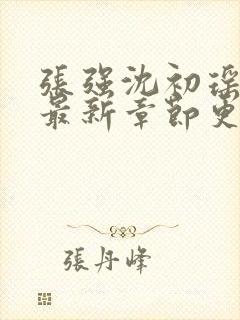 張強沈初瑶
最新章節更
張丹峰